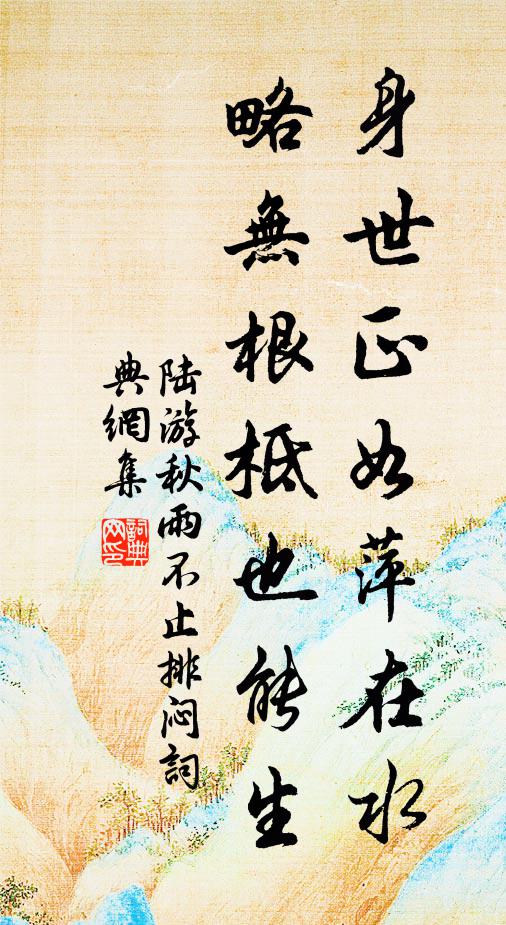 身世正如萍在水
略無根柢也能生
陆游秋雨不止排闷詞
典網集
詞典
网印